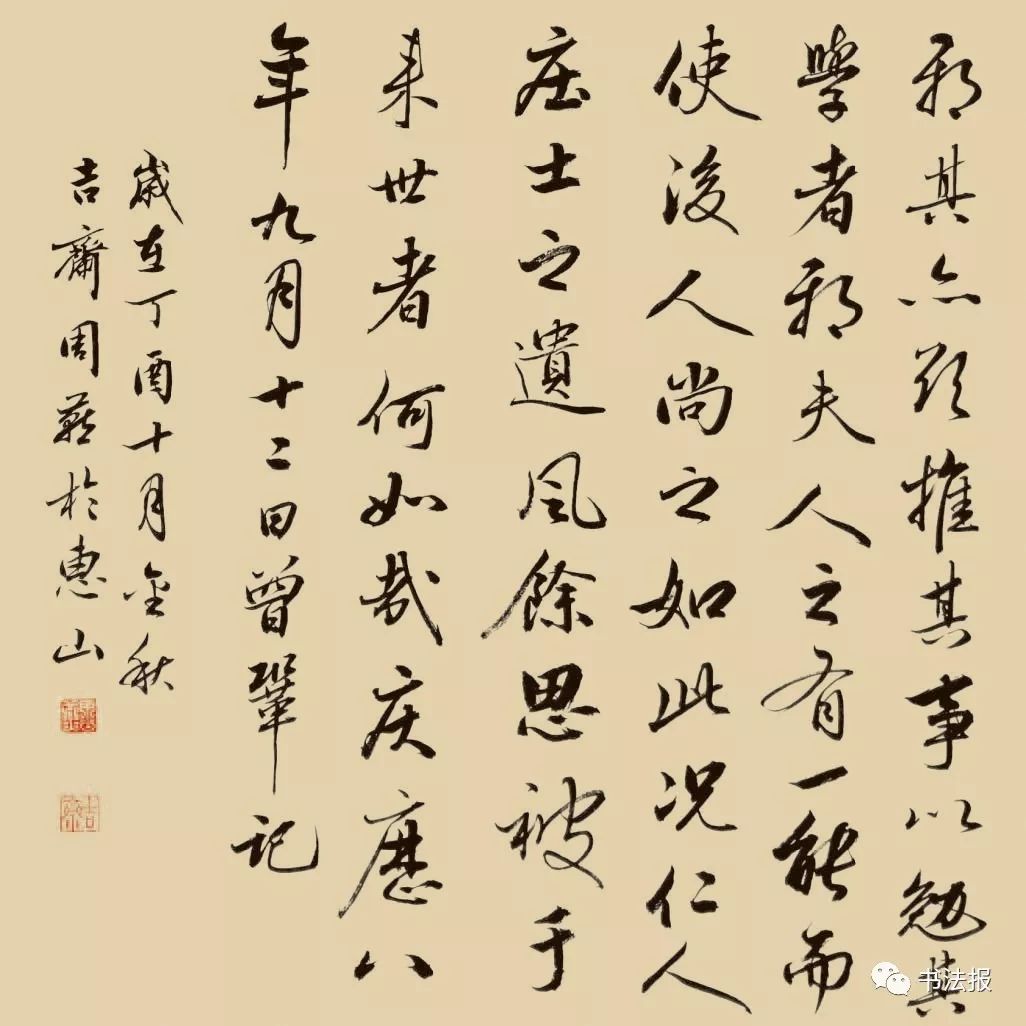 邪其亦欲推其事以勉其
學者邪夫人之有一能而
使後人尚之如此况仁人
庄士之遺風餘思被于
来世者何如哉庆歷八
年九月十二日曾鞏記
歲在丁酉十月金秋
吉齋周於惠山
书法报